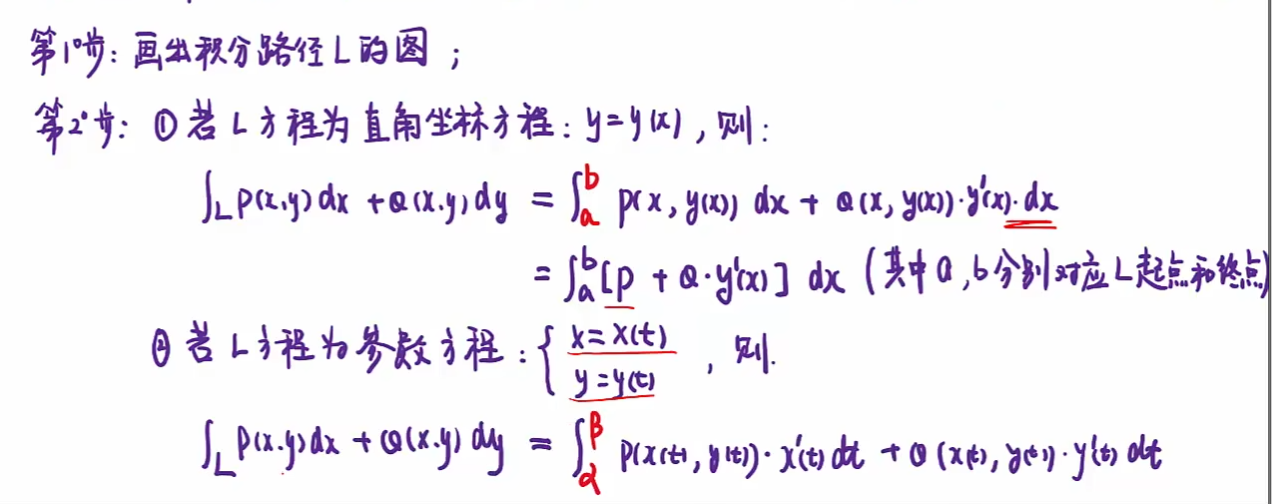 第1°步: 画出积分路径L的图 ;
第2°步: ① 若L方程为直角坐标方程: y=y(x), 则:
∫_L P(x,y)dx + Q(x,y)dy = ∫_a^b P(x, y(x)) dx + Q(x, y(x))·y'(x)·dx
= ∫_a^b [P + Q·y'(x)] dx (其中a,b分别对应L起点和终点)
② 若L方程为参数方程: { x=x(t) , 则.
y=y(t)
∫_L P(x,y)dx + Q(x,y)dy = ∫_α^β P(x(t), y(t))·x'(t)dt + Q(x(t), y(t))·y'(t)dt